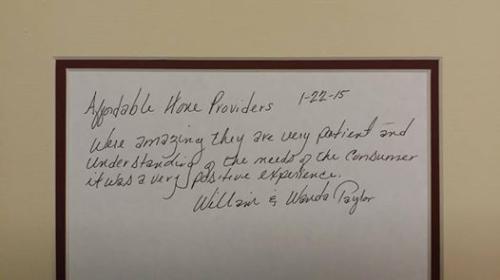 Affordable Home Providers 1-22-15
Were amazing they are very patient and
understanding of the needs of the consumer
it was a very positive experience.
William & Wanda Taylor